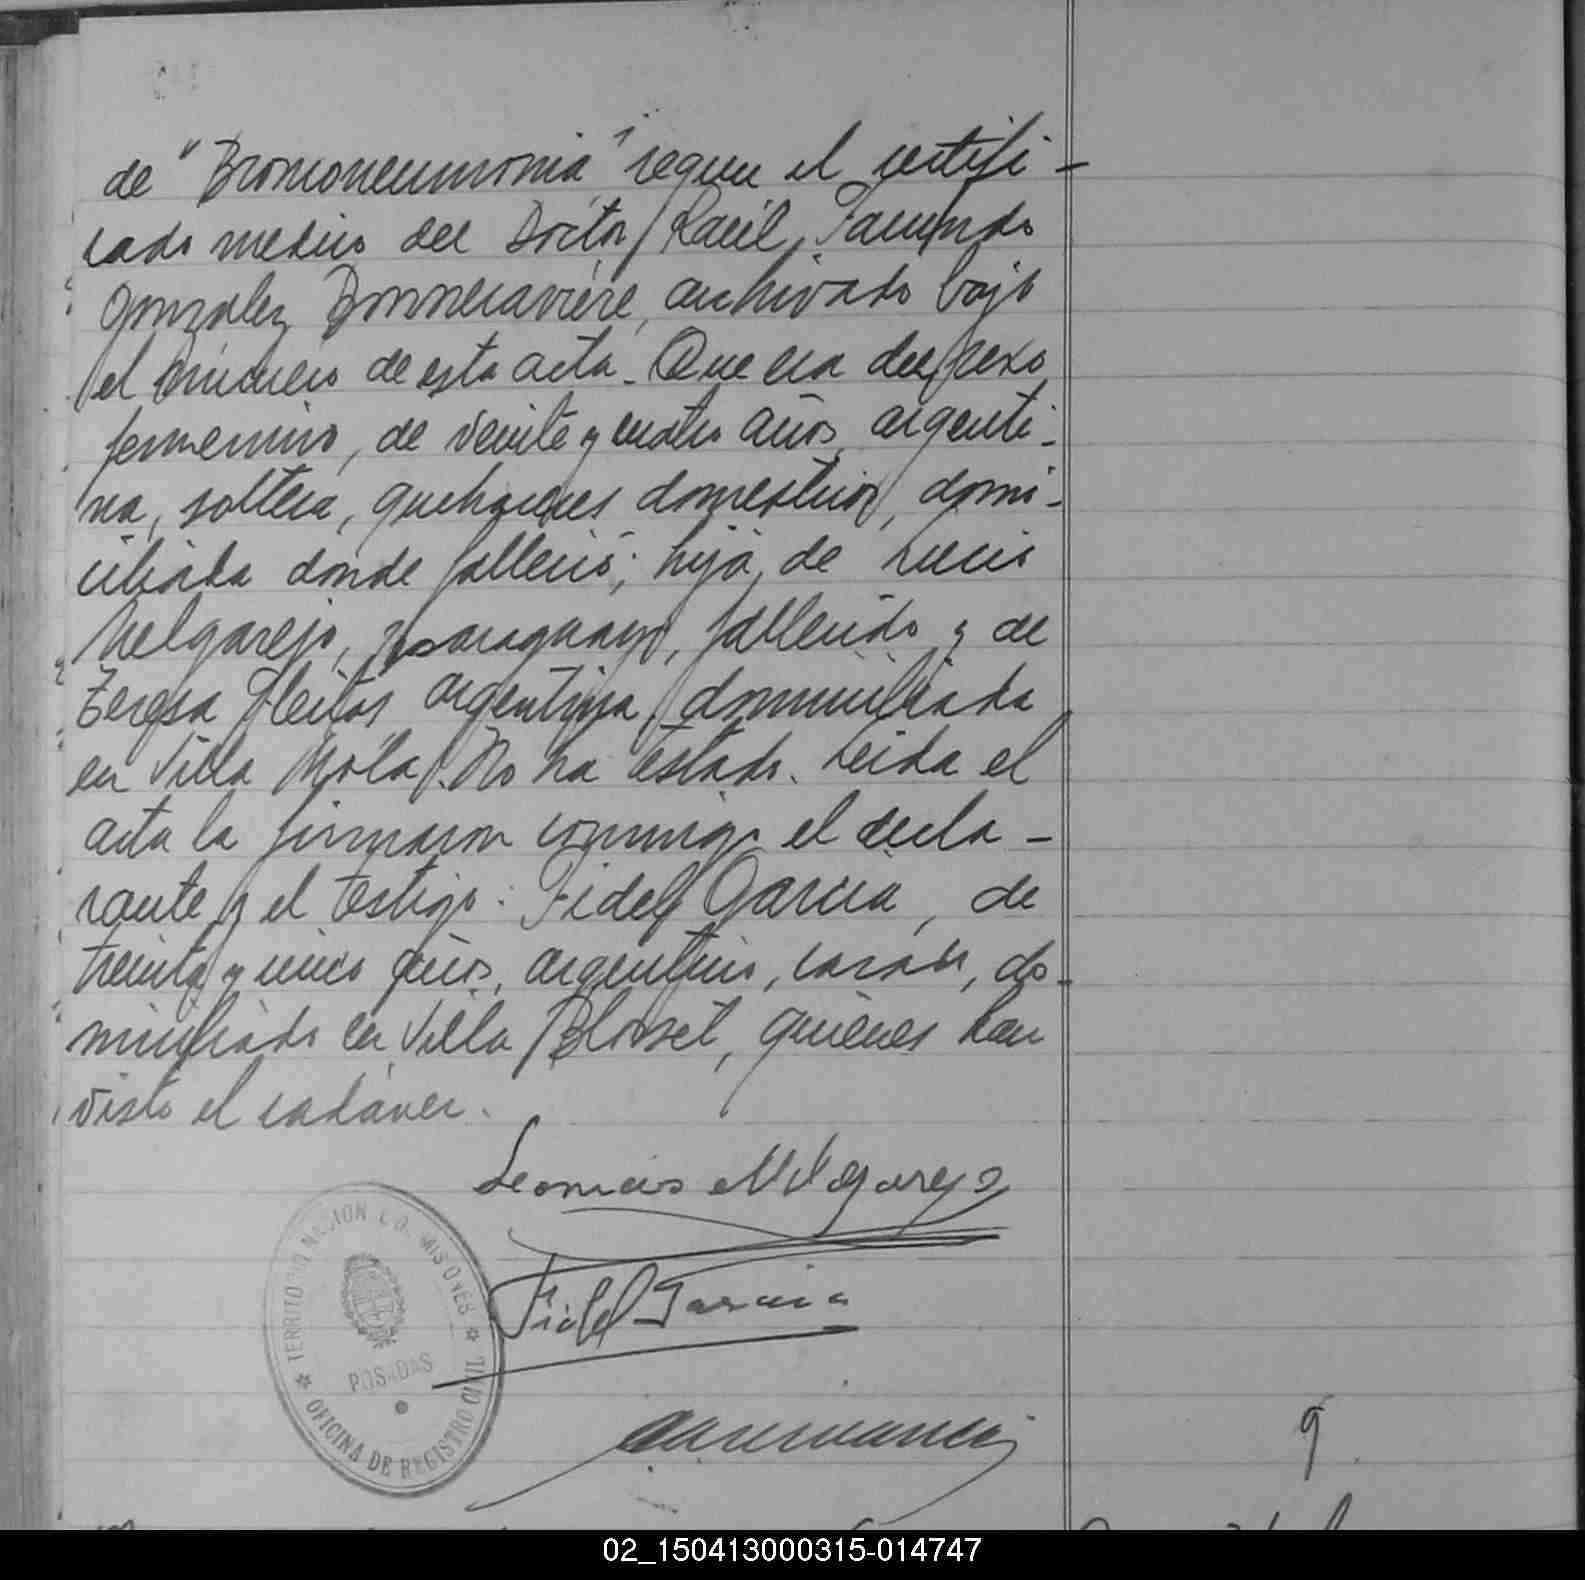 de "Bronconeumonia" segun el certifi-
cado medico del Doctor Raúl Facundo
Gonzalez Bonnecaviére, archivado bajo
el número de esta acta. Que era del sexo
femenino, de veinte y cuatro años, argenti-
na, soltera, quehaceres domesticos, domi-
ciliada donde falleció; hija de Lucio
Melgarejo, paraguayo, fallecido y de
Teresa Fleitas, argentina, domiciliada
en Villa Mola. No ha testado. Leida el
acta la firmaron conmigo el decla-
rante y el testigo: Fidel Garcia, de
treinta y cinco años, argentino, casado, do-
miciliado en Villa Blosset, quiénes han
visto el cadáver.
Melgarejo
TERRITORIO NACIONAL DE MISIONES
Fidel Garcia
POSADAS
OFICINA DE REGISTRO CIVIL
9
02_150413000315-014747